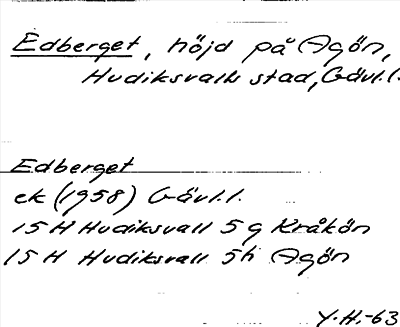 Edberget, höjd på Agön,
Hudiksvalls stad, Gävl.l.
Edberget
ek (1958) Gävl.l.
15H Hudiksvall 5g Kråkön
15H Hudiksvall 5h Agön
Y.H.-63